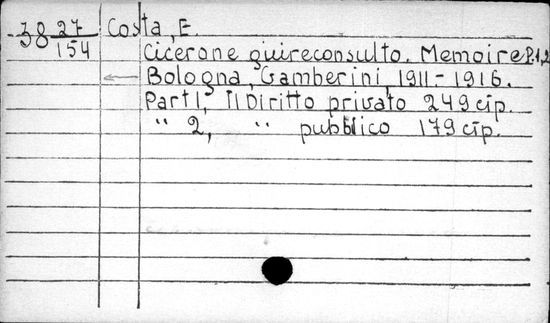 38 27/154 Costa, E.
Cicerone guireconsulto. Memoire P.1,2
Bologna, Gamberini, 1911-1916.
Part 1, Il Diritto privato 249 cip.
" 2, " pubblico 179 cip.